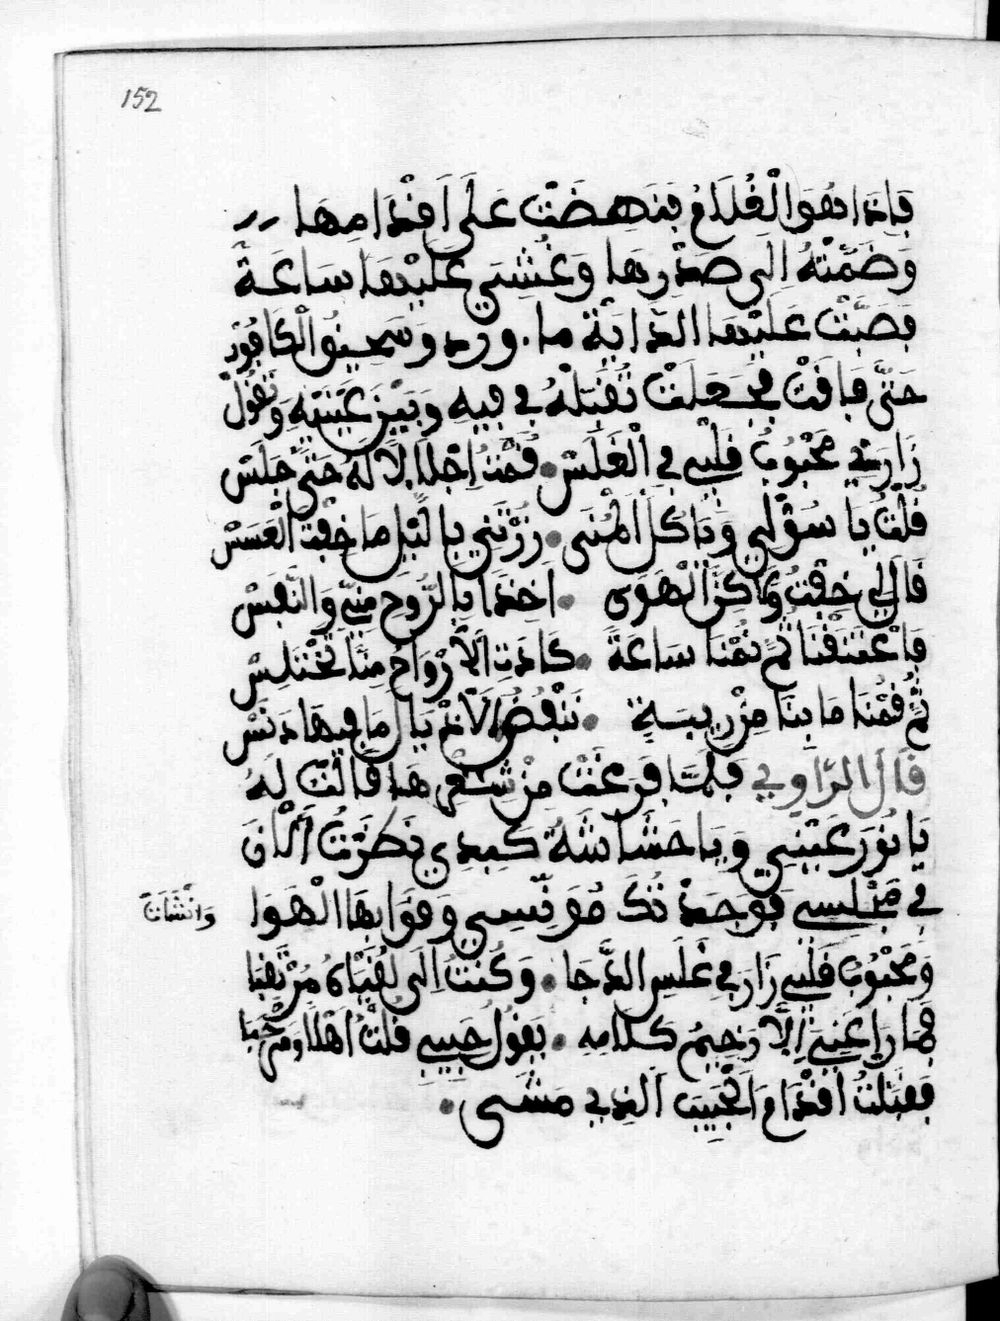 152
فَإِذَا هُوَ الْغُلَامُ فَنَهَضَتْ عَلَى أَقْدَامِهَا
وَضَمَّتْهُ إِلَى صَدْرِهَا وَغُشِيَ عَلَيْهَا سَاعَةً
فَصَبَّتْ عَلَيْهَا الدَّايَةُ مَا. وَرد وَسَحِيقُ الْكَافُورْ
حَتَّى فَاقَتْ فَجَعَلَتْ تُقَبِّلْهُ فِي فِيهِ وَبَيْنَ عَيْنَيْهِ وَتَقُولْ
زَارَنِي مَحْبُوبُ قَلْبِي فِي الْغَلَسْ • قُمْتُ إِجْلَالًا لَهُ حَتَّى جَلَسْ
قُلْتُ يَا سُؤْلِي وَيَا كُلَّ الْمُنَى • زُرْتَنِي بِالَّيْلِ مَا خِفْتَ الْعَسَسْ
قَالَ لِي خِفْتُ وَلَاكِنَّ الْهَوَى • آخِذًا بِالرُّوحِ مِنِّي وَالنَّفَسْ
فَاعْتَنَقْنَا ثُمَّ نُمْنَا سَاعَةً • كَادَتِ الْأَرْوَاحُ مِنَّا تُخْتَلَسْ
ثُمَّ قُمْنَا مَا بِنَا مِنْ رِيبَةٍ • نَنْفُضُ الْأَذْيَالَ مَا فِيهَا دَنَسْ
قَالَ الرَّاوِي فَلَمَّا فَرَغَتْ مِنْ شَعْرِهَا قَالَتْ لَهُ
يَا نُورَ عَيْنِي وَيَا حَشَاشَةَ كَبِدِي نَظَرْتُ الْآنَ
فِي مَجْلِسِي فَوَجَدْتُكَ مُونِسِي وَفُؤَادِهَا الْهَوَا
وَانْشَاتْ
وَمَحْبُوبُ قَلْبِي زَارَ فِي غَلَسِ الدُّجَا • وَكُنْتُ إِلَى لُقْيَاهُ مُرْتَقِبَا
فَمَا رَاعَنِي إِلَّا رَخِيمُ كَلَامِهِ • يَقُولُ حَبِيبِي قُلْتُ أَهْلًا وَمَرْحَبَا
فَقَبَّلْتُ أَقْدَامَ الْحَبِيبِ الَّذِي مَشَى •